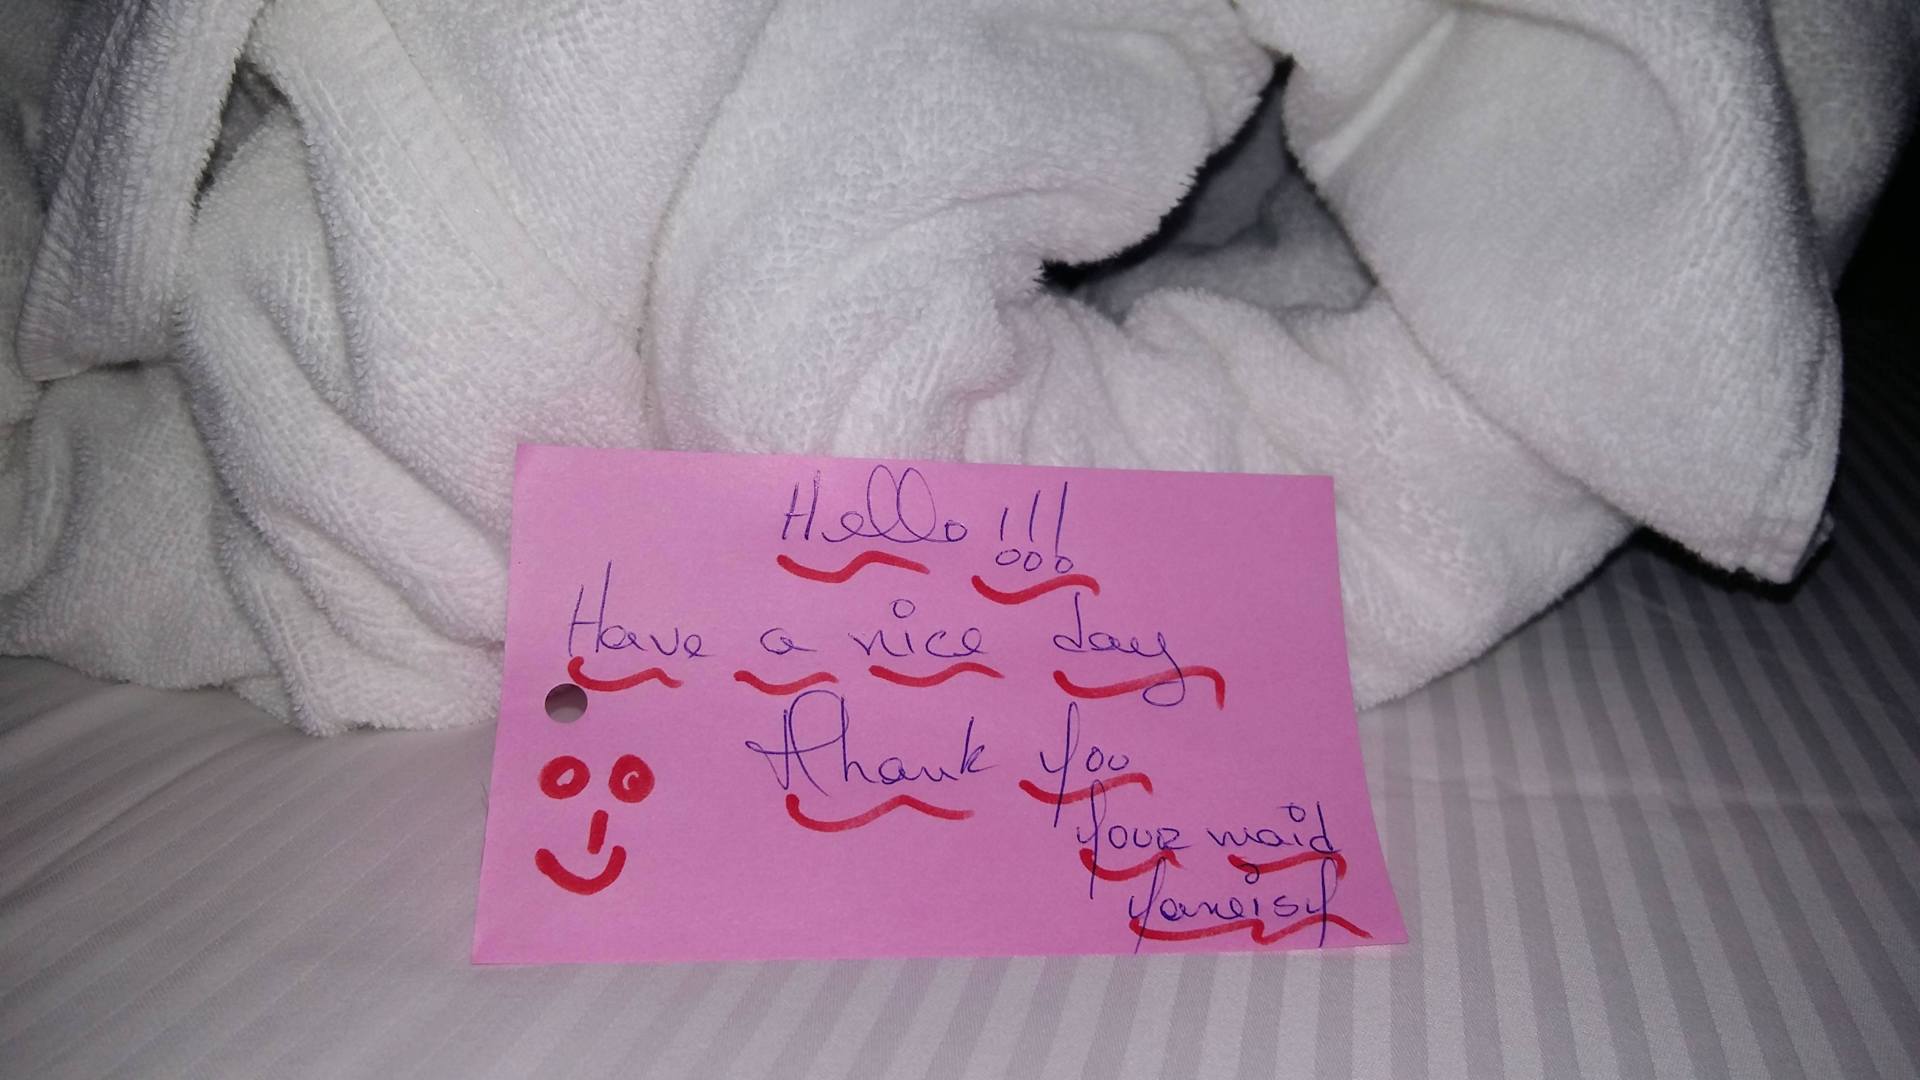 Hello !!!
Have a nice day
Thank you
Your maid
Yaneisy